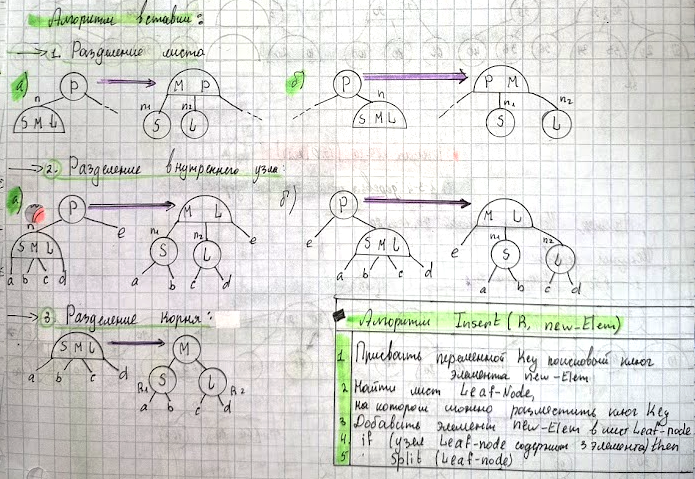 Алгоритм вставки:
1. Разделение листа
а)
P
n
S M L
M P
n1
n2
S
L
б)
P
n
S M L
P M
n1
n2
S
L
2. Разделение внутреннего узла:
а)
P
n
S M L
e
a b c d
M L
n1
n2
S
L
e
a b c d
б)
P
e
S M L
a b c d
M L
e
n1
n2
S
L
a b c d
3. Разделение корня:
S M L
a b c d
M
S
L
R1
R2
a b c d
Алгоритм Insert (R, new-Elem)
1 Присвоить переменной Key поисковый ключ
элемента new-Elem
2 Найти лист Leaf-Node,
на котором можно разместить ключ Key
3 Добавить элемент new-Elem в лист Leaf-node
4 if (узел Leaf-node содержит 3 элемента) then
5 Split (Leaf-node)